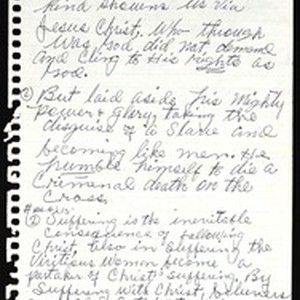 kind shown us via
Jesus Christ, Who through
Was God, did not, demand
and Cling to His rights as
God.
2) But laid aside His Mighty
Power & Glory, taking the
disguise of a Slave and
becoming like men. He
humble himself to die a
Cremenal death on the
Cross.
② Suffering is the ineritable
consequence of following
Christ, also in suffering the
Viritious Women become a
partaker of Christ' suffering. By
Suffering with Christ, believers